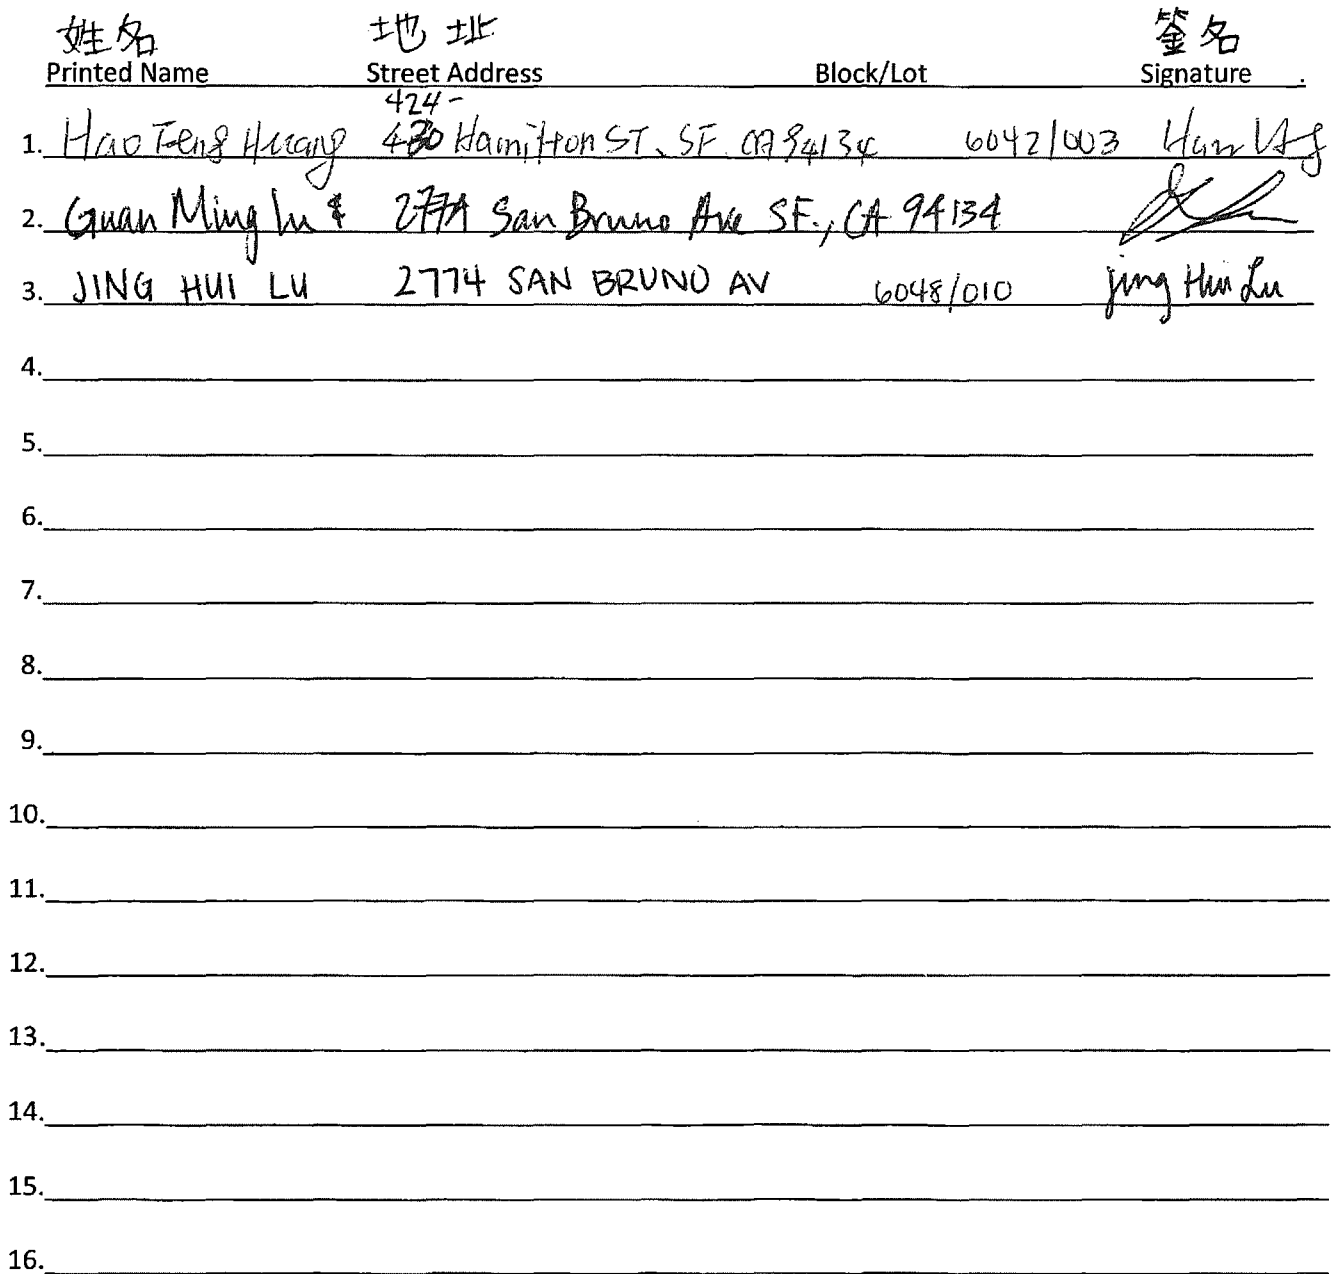 姓名 地址 簽名
Printed Name Street Address Block/Lot Signature
424-
1. Hao Feng Huang 430 Hamilton ST. SF. CA 94134 6042/003
2. Guan Ming Lu & 2774 San Bruno Ave SF., CA 94134
3. JING HUI LU 2774 SAN BRUNO AV 6048/010 Jing Hui Lu
4.
5.
6.
7.
8.
9.
10.
11.
12.
13.
14.
15.
16.